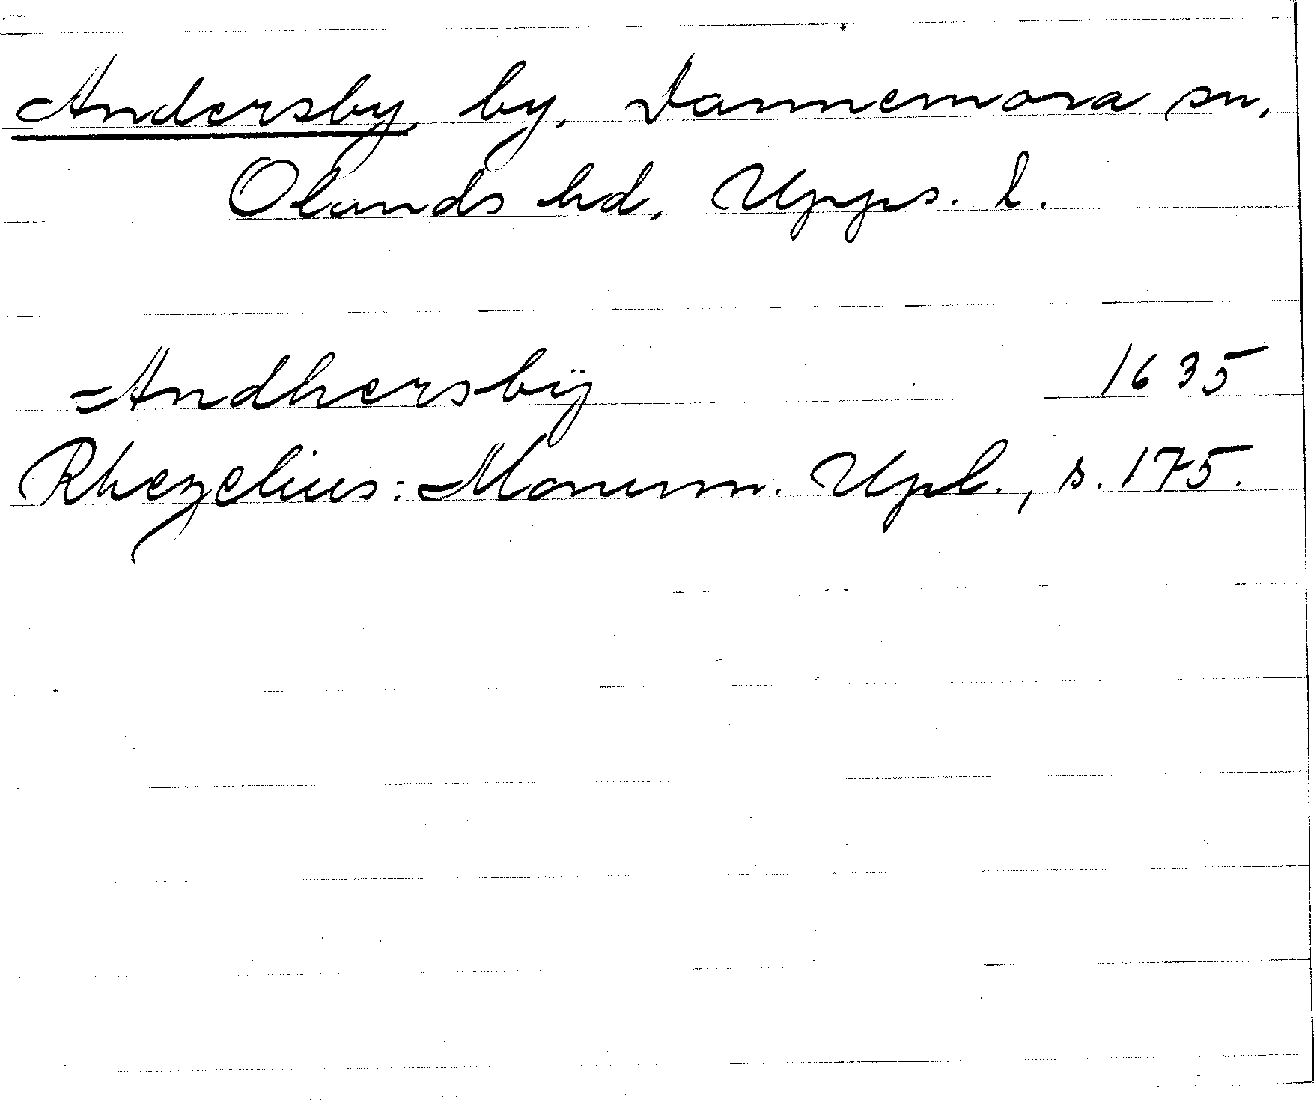 Andersby by. Dannemora sn.
Olands hd. Upps. l.
Andhersbÿ 1635
Rhezelius: Monum. Upl., s. 175.